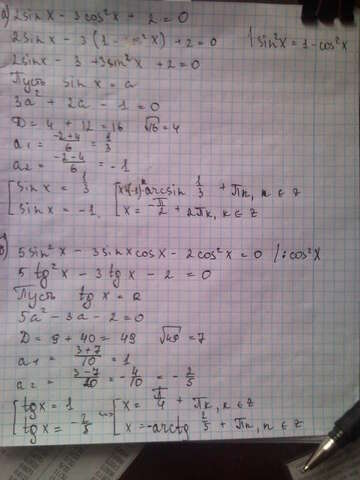 а) 2sinx - 3cos²x + 2 = 0
2sinx - 3(1 - sin²x) + 2 = 0 / sin²x = 1 - cos²x
2sinx - 3 + 3sin²x + 2 = 0
Пусть sinx = a
3a² + 2a - 1 = 0
D = 4 + 12 = 16 √16 = 4
a₁ = (-2+4)/6 = 1/3
a₂ = (-2-4)/6 = -1
[ sinx = 1/3 [ x = (-1)ᵏ arcsin 1/3 + πk, k ∈ z
[ sinx = -1. [ x = -π/2 + 2πk, k ∈ z
б) 5sin²x - 3sinxcosx - 2cos²x = 0 /: cos²x
5tg²x - 3tgx - 2 = 0
Пусть tgx = a
5a² - 3a - 2 = 0
D = 9 + 40 = 49 √49 = 7
a₁ = (3+7)/10 = 1
a₂ = (3-7)/10 = -4/10 = -2/5
[ tgx = 1 <=> [ x = π/4 + πk, k ∈ z
[ tgx = -2/5 [ x = -arctg 2/5 + πk, k ∈ z